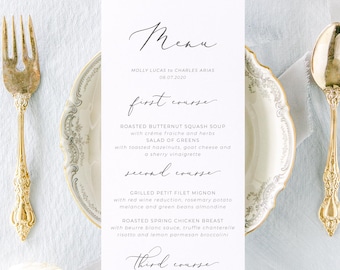 Menu
MOLLY LUCAS to CHARLES ARIAS
08.07.2020
first course
ROASTED BUTTERNUT SQUASH SOUP
with crème fraiche and herbs
SALAD OF GREENS
with toasted hazelnuts, goat cheese and
a sherry vinaigrette
second course
GRILLED PETIT FILET MIGNON
with red wine reduction, rosemary potato
and green almondine
ROASTED SPRING CHICKEN BREAST
with beurre blanc sauce, truffle chanterelle
risotto and lemon parmesan broccolini
third course